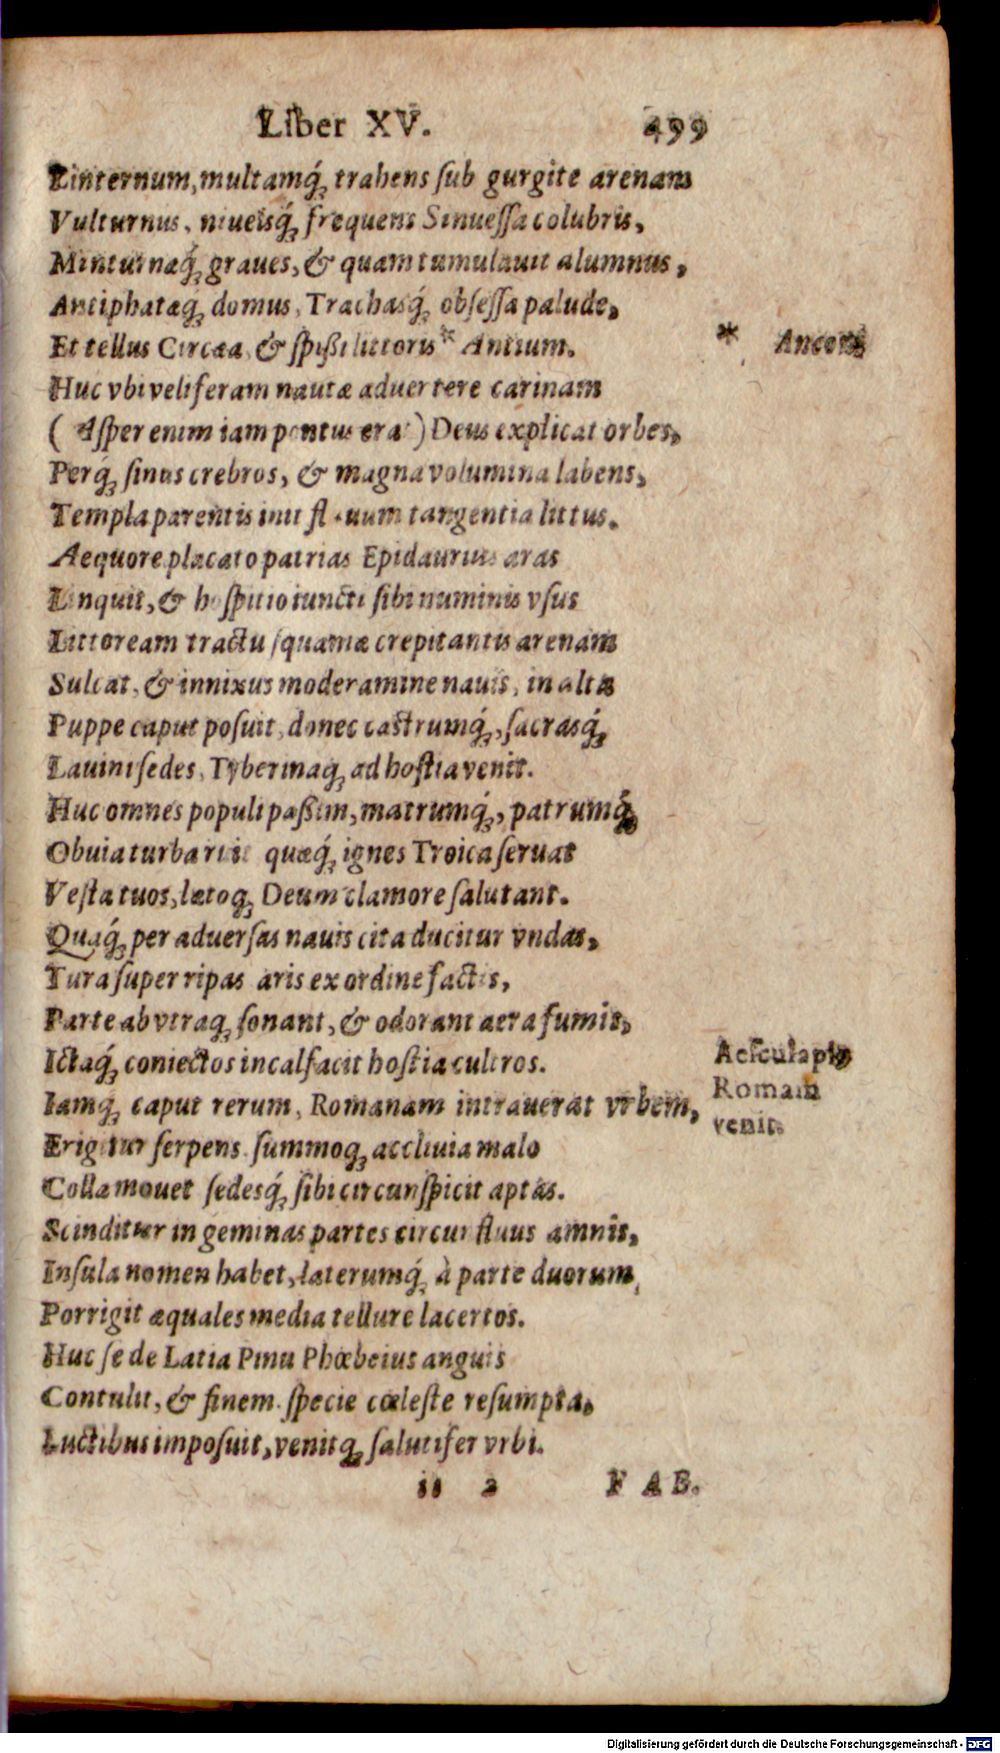 Liber XV. 499
Linternum, multamq́; trahens ſub gurgite arenam
Vulturnus, niueisq́; frequens Sinueſſa colubris,
Minturnæq́; graues, & quam tumulauit alumnus,
Antiphatæq́; domus, Trachasq́; obſeſſa palude,
Et tellus Circæa, & ſpißi littoris * Antium.
* 
Huc vbi veliferam nautæ aduertere carinam
( Aſper enim iam pontus erat ) Deus explicat orbes,
Perq́; ſinus crebros, & magna volumina labens,
Templa parentis init fl uum tangentia littus.
Aequore placato patrias Epidaurius aras
Linquit, & hoſpitio iuncti ſibi numinis vſus
Littoream tractu ſquamæ crepitantis arenam
Sulcat, & innixus moderamine nauis, in alta
Puppe caput poſuit, donec caſtrumq́;, ſacrasq́;
Lauini ſedes, Tyberinaq; ad hoſtia venit.
Huc omnes populi paßim, matrumq́;, patrumq́;
Obuia turba ruit quæq́; ignes Troica ſeruat
Veſta tuos, lætoq; Deum clamore ſalutant.
Quaq́; per aduerſas nauis cita ducitur vndas,
Tura ſuper ripas aris ex ordine factis,
Parte ab vtraq; ſonant, & odorant aera fumis,
Ictaq́; coniectos incalfacit hoſtia cultros.
Aeſculapiꝰ
Romam
venit.
Iamq́; caput rerum, Romanam intrauerat vrbem,
Erigitur ſerpens. ſummoq; accliuia malo
Colla mouet ſedesq́; ſibi circunſpicit aptas.
Scinditur in geminas partes circumfluus amnis,
Inſula nomen habet, laterumq́; à parte duorum,
Porrigit æquales media tellure lacertos.
Huc ſe de Latia Pinu Phœbeius anguis
Contulit, & finem. ſpecie cœleſte reſumpta,
Luctibus impoſuit, venitq; ſalutifer vrbi.
ii 2 FAB.
Digitalisierung gefördert durch die Deutsche Forschungsgemeinschaft - DFG